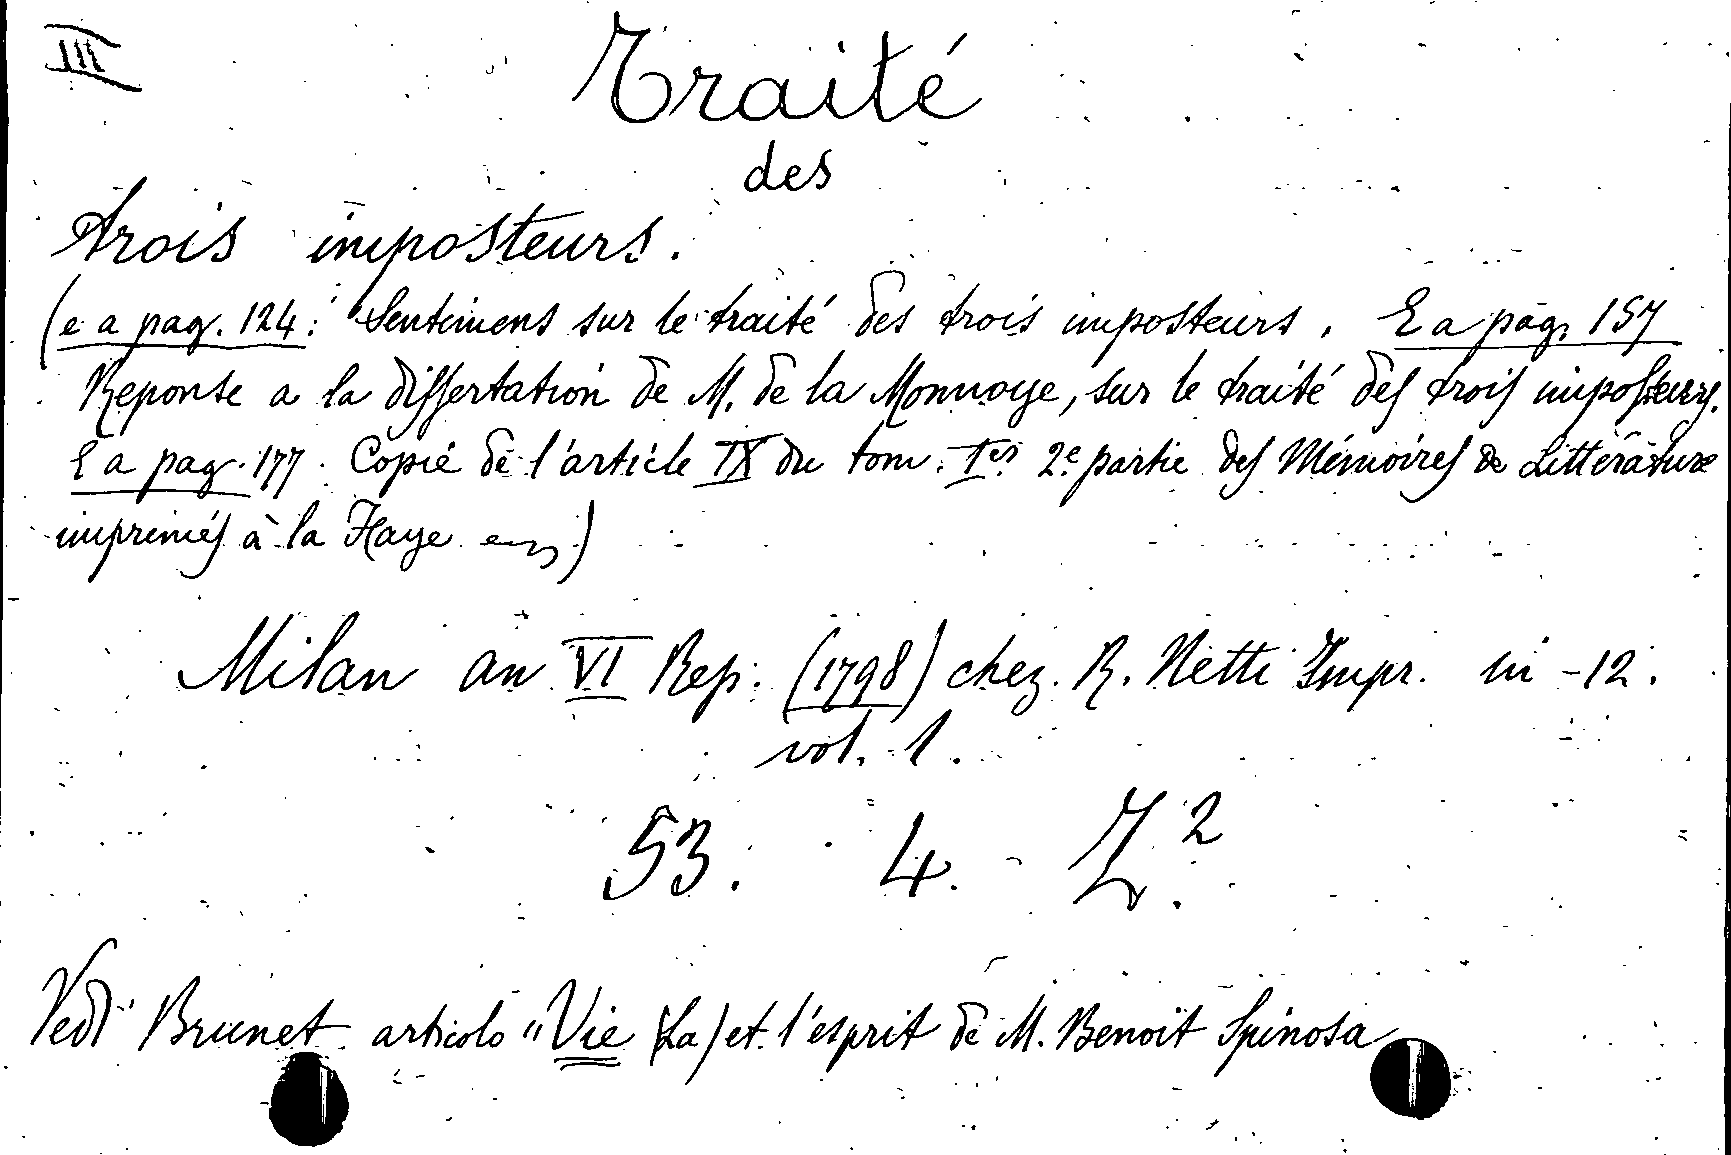 III
Traité
des
trois imposteurs.
(e a pag. 124: "Sentimens sur le traité des trois imposteurs. E a pag. 157
Reponse a la dissertation de M. de la Monnoye, sur le traité des trois imposteurs.
E a pag. 177. Copié de l'article IX du tom. Ier 2e partie des Mémoires de Littérature
imprimés à la Haye)
Milan an VI Rep: (1798) chez. R. Netti Impr. in -12.
vol. 1.
53. 4. Z.2
Vedi Brunet articolo "Vie (La) et l'esprit de M. Benoit Spinosa